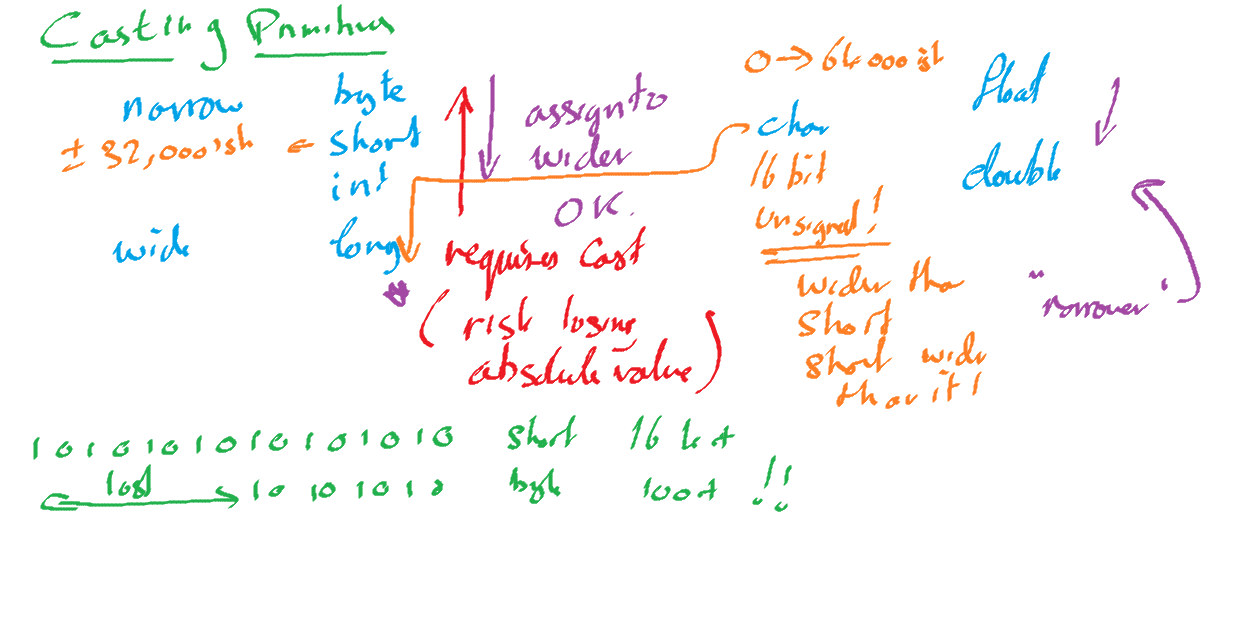 Casting Primitives
narrow
± 32,000'ish
wide
byte
short
int
long
assign to
wider
OK.
requires cast
(risk losing
absolute value)
0 → 64000ish
char
16 bit
unsigned!
wider than
short
short wider
than it!
float
double
"narrower"
1010101010101010 short 16 bit
lost 10101010 byte !!